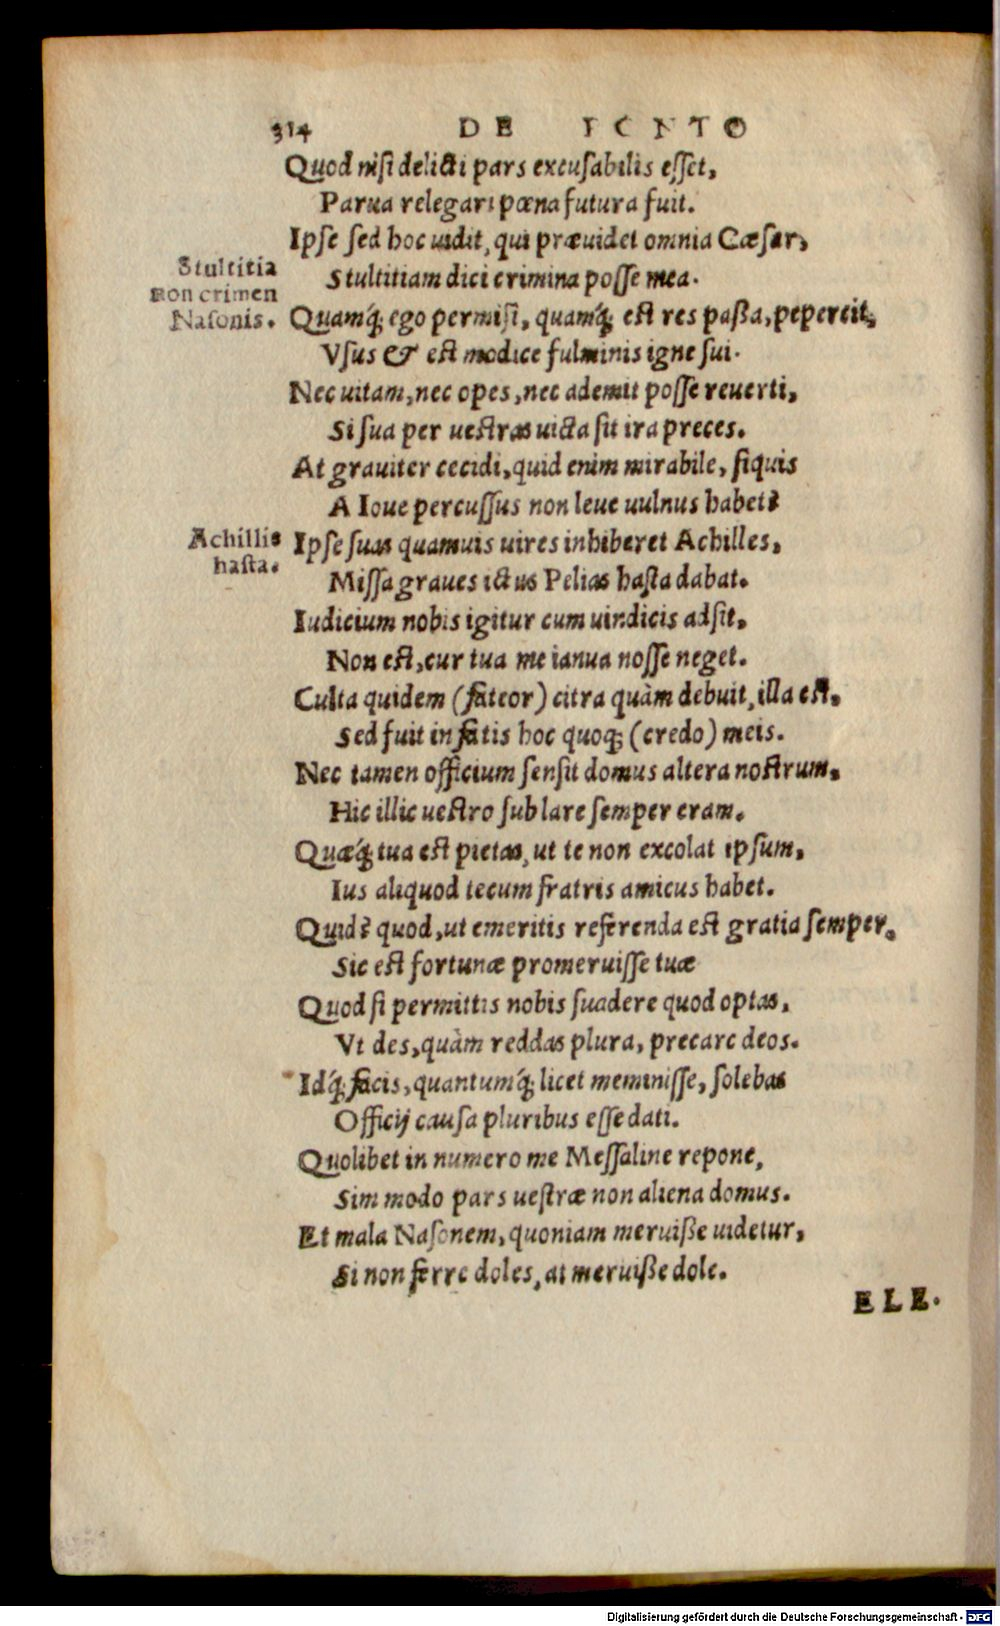 314 DE PONTO
Quod nisi delicti pars excusabilis esset,
Parua relegari pœna futura fuit.
Ipse sed hoc uidit, qui præuidet omnia Cæsar,
Stultitiam dici crimina posse mea.
Stultitia
non crimen
Nasonis.
Quamq́; ego permisi, quamq́; est res passa, pepercit,
Vsus & est modice fulminis igne sui.
Nec uitam, nec opes, nec ademit posse reuerti,
Si sua per uestras uicta sit ira preces.
At grauiter cecidi, quid enim mirabile, siquis
A Ioue percussus non leue uulnus habet?
Achillis
hasta.
Ipse suas quamuis uires inhiberet Achilles,
Missa graues ictus Pelias hasta dabat.
Iudicium nobis igitur cum uindicis adsit,
Non est, cur tua me ianua nosse neget.
Culta quidem (fateor) citra quàm debuit, illa est,
Sed fuit in fatis hoc quoq; (credo) meis.
Nec tamen officium sensit domus altera nostrum,
Hic illic uestro sub lare semper eram.
Quæq́; tua est pietas, ut te non excolat ipsum,
Ius aliquod tecum fratris amicus habet.
Quid? quod, ut emeritis referenda est gratia semper,
Sic est fortunæ promeruisse tuæ
Quod si permittis nobis suadere quod optas,
Vt des, quàm reddas plura, precare deos.
Idq́; facis, quantumq́; licet meminisse, solebas
Officij causa pluribus esse dati.
Quolibet in numero me Messaline repone,
Sim modo pars uestræ non aliena domus.
Et mala Nasonem, quoniam meruisse uidetur,
Si non ferre doles, at meruisse dole.
ELE.
Digitalisierung gefördert durch die Deutsche Forschungsgemeinschaft - DFG